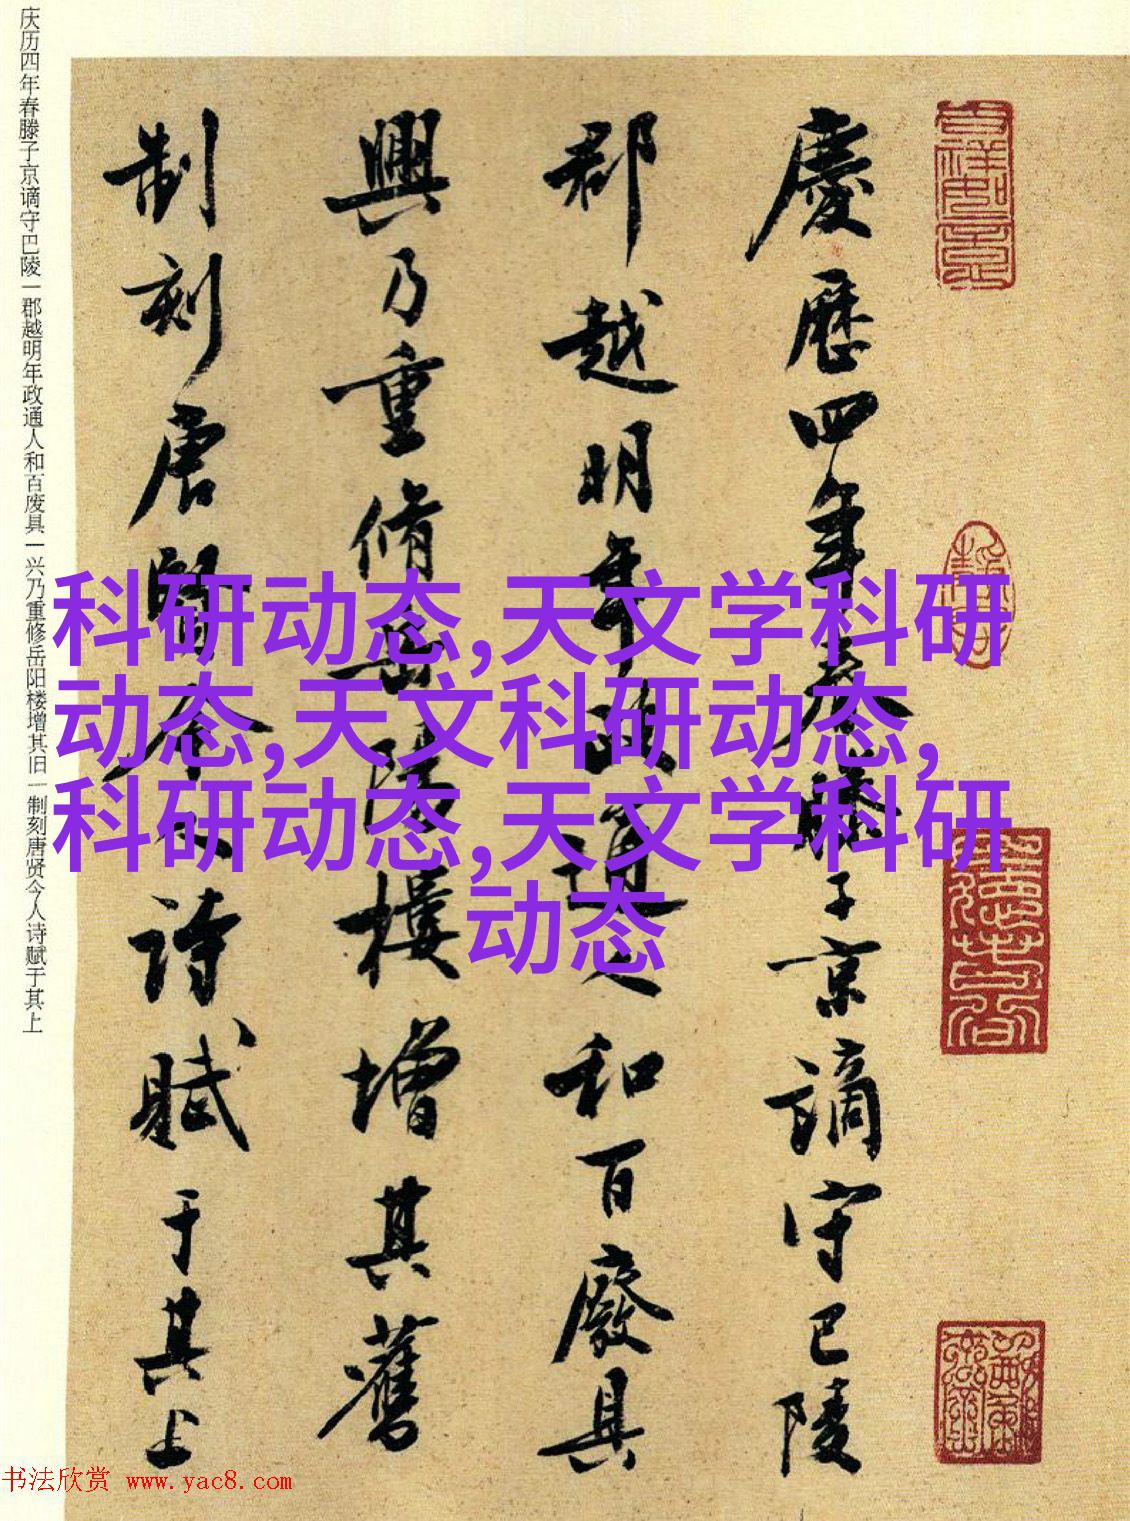 慶歷四年春滕子京謫守巴陵
郡越明年政通人和百廢具
興乃重脩岳陽樓增其舊
制刻唐賢今人詩賦于其上
庆历四年春滕子京谪守巴陵一郡越明年政通人和百废具一兴乃重修岳阳楼增其旧一制刻唐贤今人诗赋于其上
科研动态,天文学科研
动态,天文科研动态,
科研动态,天文学科研
动态
书法欣赏 www.yac8.com